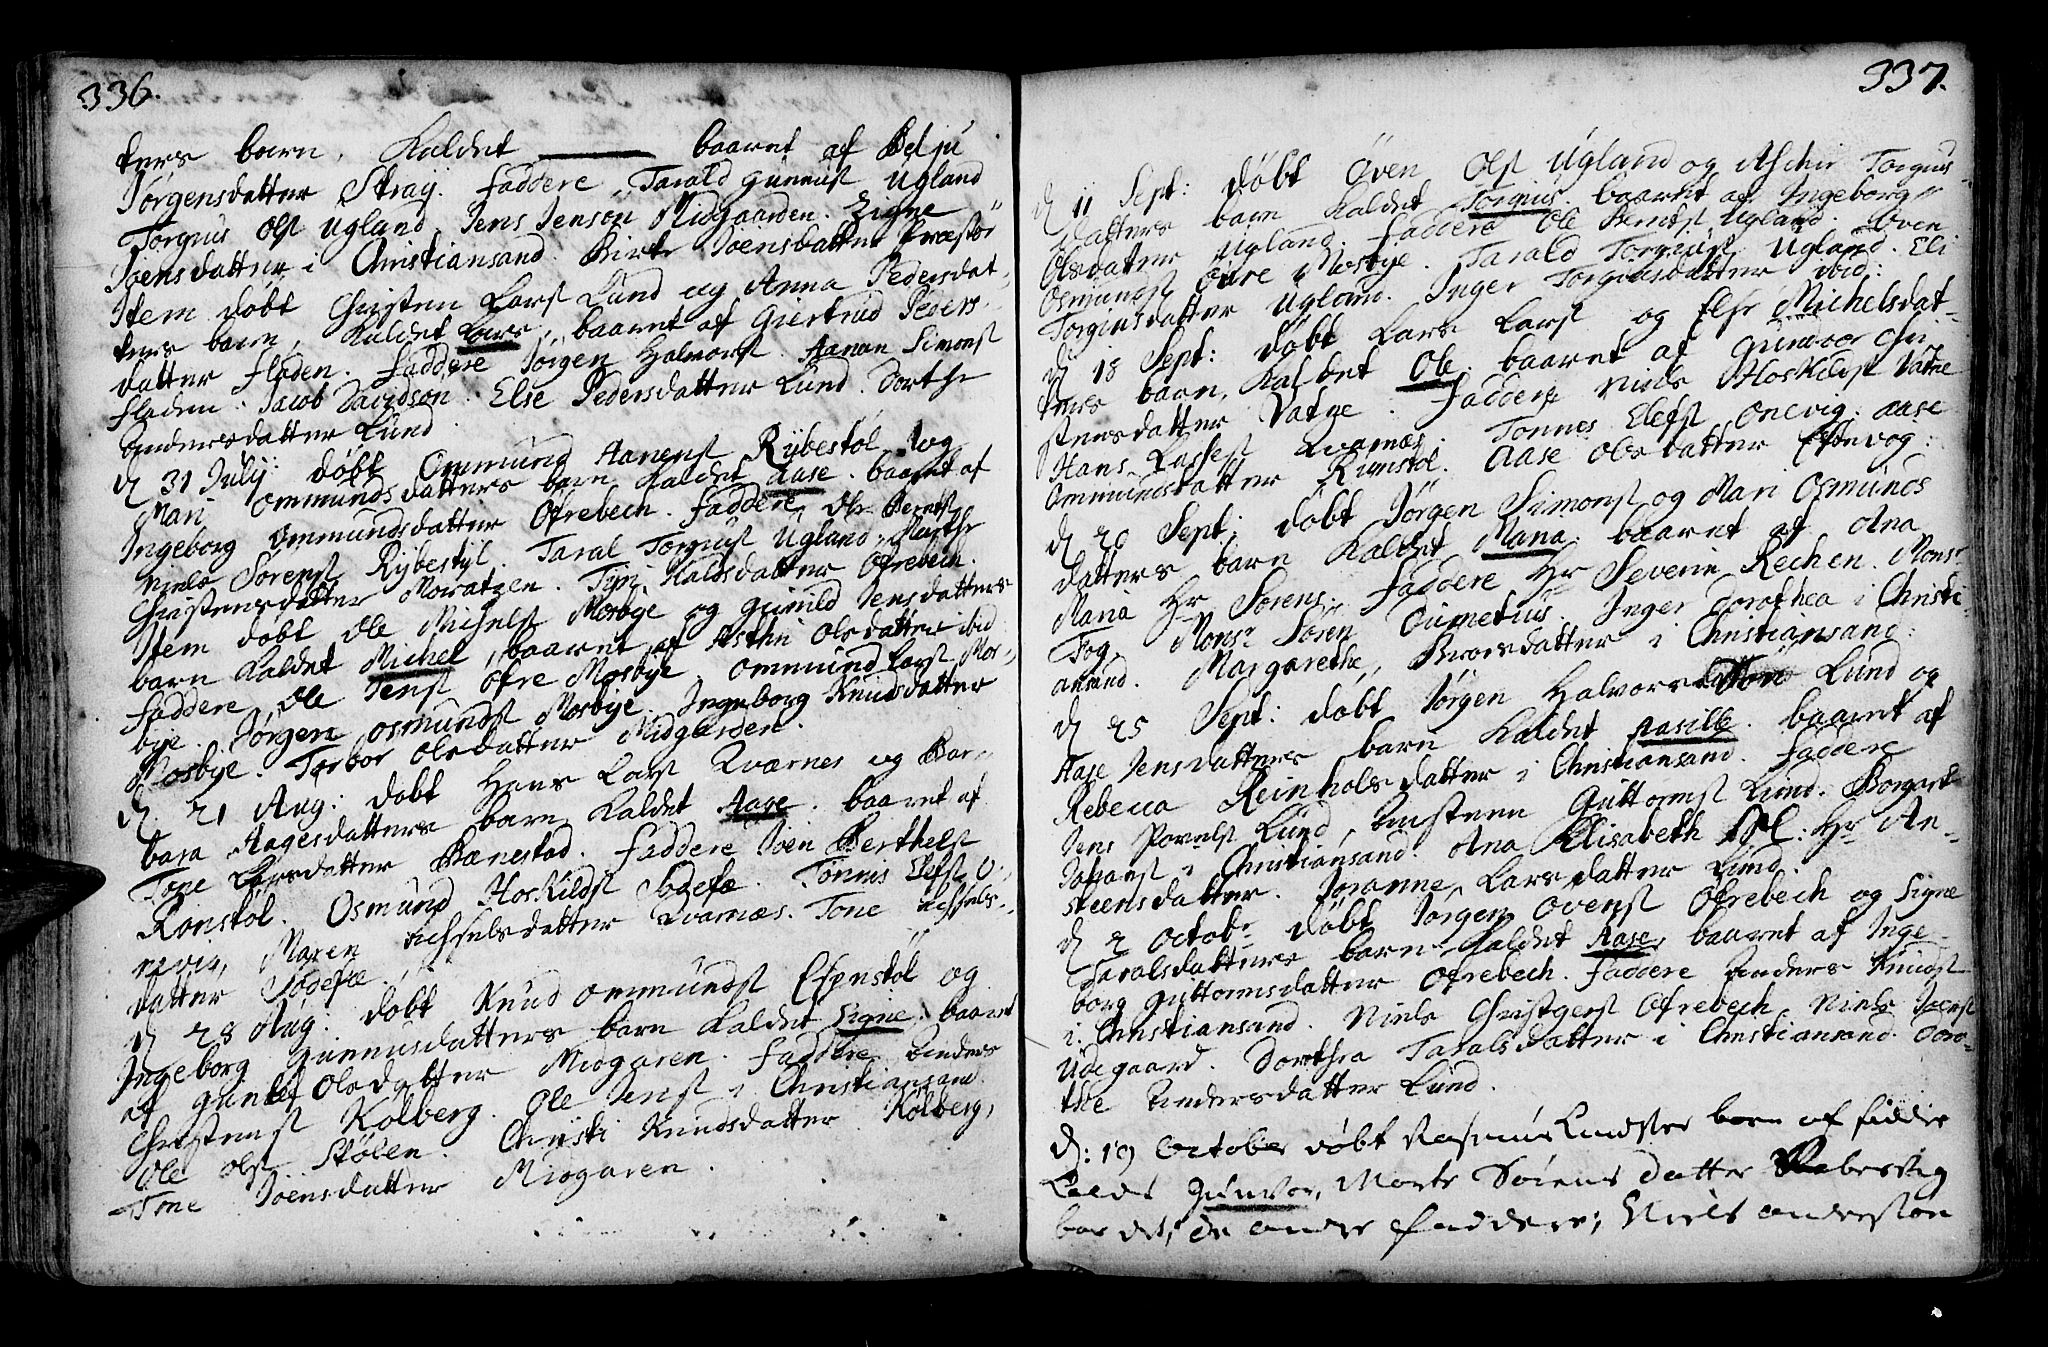 336.
ters barn, Kaldet ——— baaret af Beliu
Jørgensdatter Straÿ. Faddere, Tarald Gunnus͞ Ugland
Torgius Ols͞ Ugland, Jens Jenson Midgaarden. Signe
Joensdatter i Christiansand. Birte Joensdatter
Item døbt Christen Lars͞ Lund og Anna Pedersdat-
ters barn, Kaldet Lars, baaret af Giertrud Peders-
datter Fladen. Faddere Jørgen Halvors͞. Aanan Simons͞
Fladen. Jacob Davidson. Else Pedersdatter Lund. Dorthe
Andersdatter Lund.
d 31 Julÿ: døbt Ommund Aanens͞ Rÿbestøl og
Mari Ommundsdatters barn Kaldet Aase. baaret af
Ingeborg Ommundsdatter Ofrebech. Faddere, Ole Bernts͞
Niels Sørens͞ Rÿbestøl. Taral Torgius͞ Ugland, Marthe
Christensdatter Moratzen. Tÿri Haldsdatter Ofrebech.
Item døbt Ole Michels͞ Mosbÿe og Gunild Jensdatters
barn Kaldet Michel, baaret af Asthri Olsdatter ibid
Faddere, Ole Jens͞ Øfre Mosbÿe. Ommund Lars͞ Mos-
bÿe. Jørgen Osmunds͞ Mosbÿe. Ingeborg Knudsdatter
Mosbÿe. Torbor Olsdatter Midgarden.
d. 21 Aug: døbt Hans Lars͞ Qvarnes og Bar-
bara Aagesdatters barn Kaldet Aase. baaret af
Tone Larsdatter Banestad. Faddere Joen Berthels͞
Ronstøl. Osmund Hoskilds͞ Sodefæ. Tønnis Elefs͞ O-
nevig, Maren Achselsdatter Qvarnæs. Tone Achsels-
datter Sodefæ.
d 28 Aug: døbt Knud Ommunds͞ Efenstøl og
Ingeborg Gunnusdatters barn Kaldet Signe. baaret
af Gunlef Olsdatter Midgaren. Faddere Anders
Christens͞ Kolberg. Ole Jens͞ i Christiansand.
Ole Ols͞ Stølen. Christi Knudsdatter Kolberg,
Tone Joensdatter Midgaren.
337.
d 11 Sept: døbt Öven Ols͞ Ugland og Aschir Torgius-
datters barn Kaldet Torgius. baaret af Ingeborg
Olsdatter Ugland. Faddere Ole Bernts͞ Ugland. Oven
Osmunds͞ Øvre Mosbÿe. Tarald Torgius͞ Ugland. Eli
Torgiusdatter Ugland. Inger Torgiusdatter ibid:
d 18 Sept: døbt Lars Lars͞ og Else Michelsdat-
ters barn, Kaldet Ole. baaret af Gundvor Chri-
stensdatter Vatne. Faddere Niels Hoskilds͞ Vatne
Hans Lasses͞ Qvarnæs. Tønnes Elefs͞ Onevig. Aase
Ommundsdatter Runstøl. Aase Olsdatter
d 20 Sept: døbt Jørgen Simons͞ og Mari Osmunds
datters barn Kaldet Maria baaret af Ana
Maria Hr Sørens. Faddere Hr Severin Rechen. Monsr
Fog, Monsr Søren. Inger Dorothea i Christi-
ansand. Margarethe, datter i Christiansand:
d 25 Sept: døbt Jørgen Halvors Lund og
Aase Jensdatters barn Kaldet Aasille. baaret af
Rebecca Reinholsdatter i Christiansand. Faddere
Jens Povels͞ Lund, Austeen Guttorms͞ Lund. Borgar
Johans͞ i Christiansand. Ana Elisabeth Sl: Hr An-
steensdatter. Johanne Larsdatter Lund.
d 2 Octobr døbt Jørgen Ovens͞ Ofrebech og Signe
Taralsdatters barn Kaldet Aase, baaret af Inge-
borg Guttormsdatter Ofrebech. Faddere Anders Knuds͞
i Christiansand. Niels Christens͞ Ofrebech. Niels Joens͞
Udegaard. Dorthea Taralsdatter i Christiansand. Doro-
the Andersdatter Lund.
d: 19 October døbt Rasmus barn af
Kaldet Gunvor, Marte Sørens datter
bar det, de andre Faddere; Niels Anderssøn